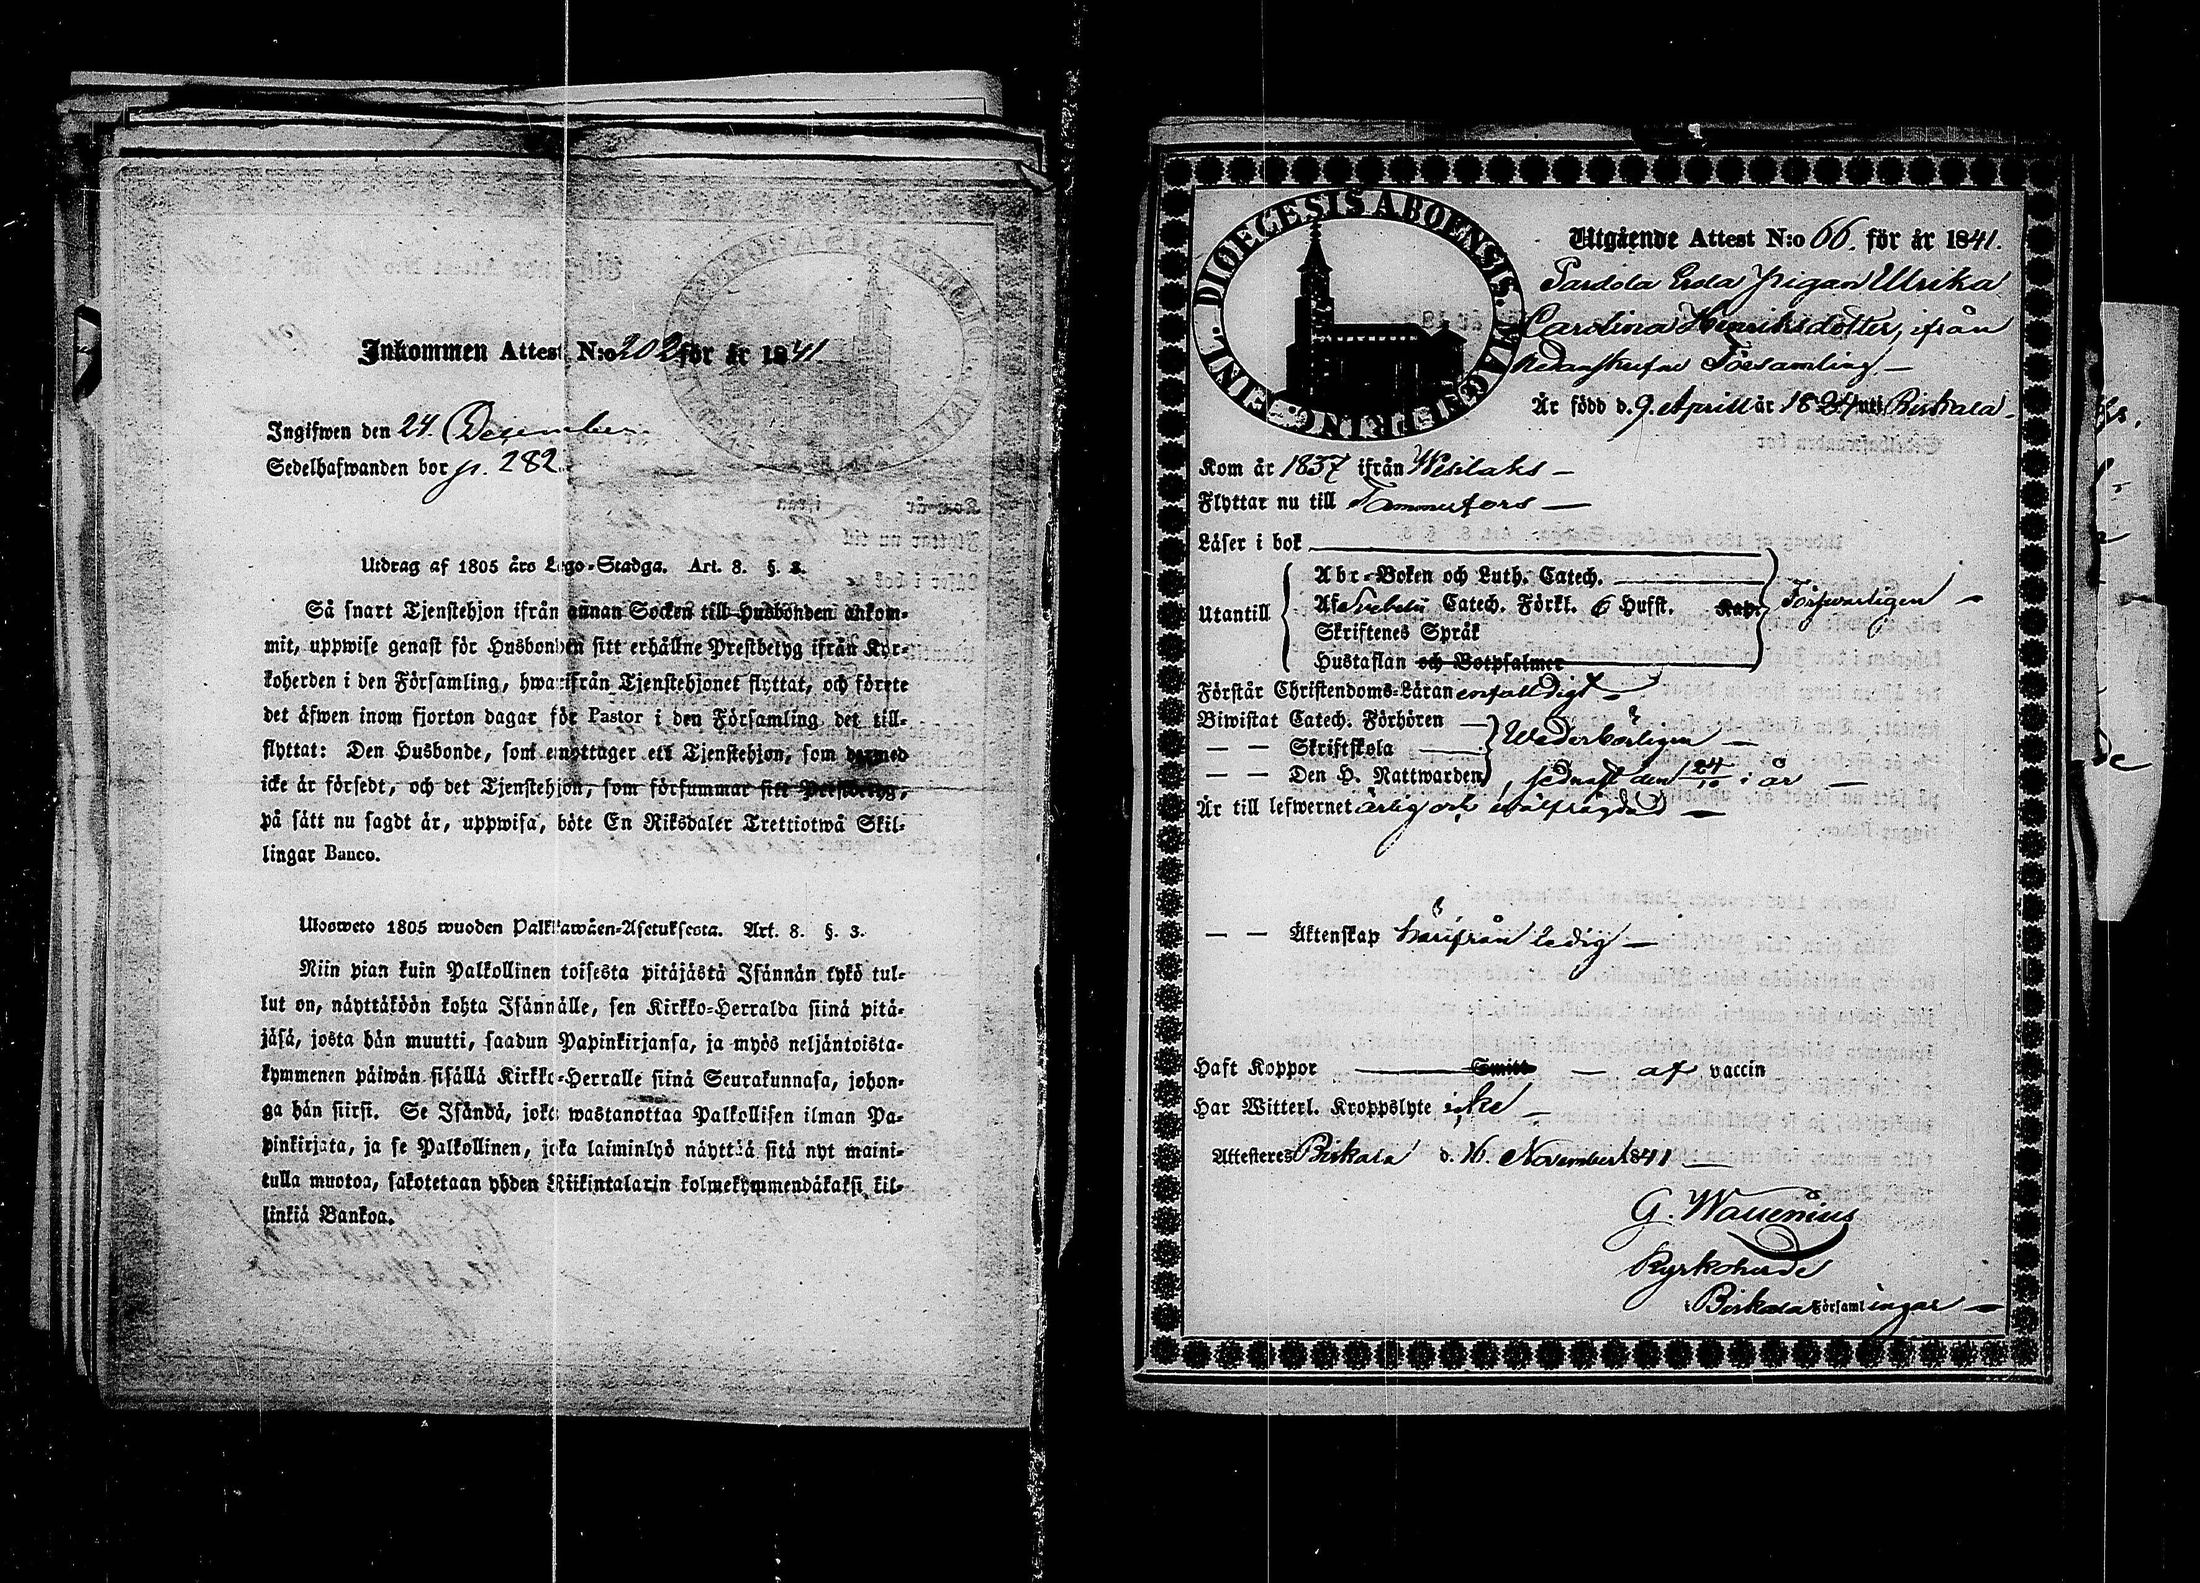 Inkommen Attest N:o 202 för år 1841
Ingifwen den 24. December
Sedelhafwanden bor p. 282.
Utdrag af 1805 års Lego-Stadga. Art. 8. §. 3.
Så snart Tjenstehjon ifrån annan Socken till Husbonden ankom-
mit, uppwise genast för Husbonden sitt erhållne Prestbetyg ifrån Kyr-
koherden i den Församling, hwarifrån Tjenstehjonet flyttat, och förete
det äfwen inom fjorton dagar för Pastor i den Församling det till-
flyttat: Den Husbonde, som emottager ett Tjenstehjon, som dermed
icke är försedt, och det Tjenstehjon, som försummar sitt Prestbetyg,
på sätt nu sagdt är, uppwisa, böte En Riksdaler Trettiotwå Skil-
lingar Banco.
Ulosweto 1805 wuoden Palkkawäen-Asetuksesta. Art. 8. §. 3.
Niin pian kuin Palkollinen toisesta pitäjästä Isännän tykö tul-
lut on, näyttäköön kohta Isännälle, sen Kirkko-Herralda siinä pitä-
jäsä, josta hän muutti, saadun Papinkirjansa, ja myös neljäntoista-
kymmenen päiwän sisällä Kirkko-Herralle siinä Seurakunnasa, johon-
ga hän siirsi. Se Isändä, joka wastanottaa Palkollisen ilman Pa-
pinkirjata, ja se Palkollinen, joka laiminlyö näyttää sitä nyt maini-
tulla muotoa, sakotetaan yhden Riikintalarin kolmekymmendäkaksi kil-
linkiä Bankoa.
FINL. DIOECESIS ABOENSIS. MAG. PRING.
Utgående Attest N:o 66. för år 1841.
Pigan Ulrika
Carolina Henriksdotter, ifrån
Församling —
Är född d. 9 Aprill år 1824 uti Birkala.
Kom år 1837 ifrån Wesilaks —
Flyttar nu till Tammerfors —
Läser i bok
Abc-Boken och Luth. Catech.
Utantill Af Svebelii Catech. Förkl. 6 Hufst. Kap. Försvarligen —
Skriftenes Språk
Hustaflan och Botpsalmer
Förstår Christendoms-Läran enfalldigt —
Biwistat Catech. Förhören —
— — Skriftskola — Wederbörligen —
— — Den H. Nattwarden, sednast den 24/10 i år —
Är till lefwernet ärlig och wälfrägdad —
— — Äktenskap härifrån ledig —
Haft Koppor — Smitt — af vaccin
Har Witterl. Kroppslyte icke —
Attesteres Birkala d. 16. November 1841 —
G. Wallenius
Kyrkoherde
i Birkala Församlingar —